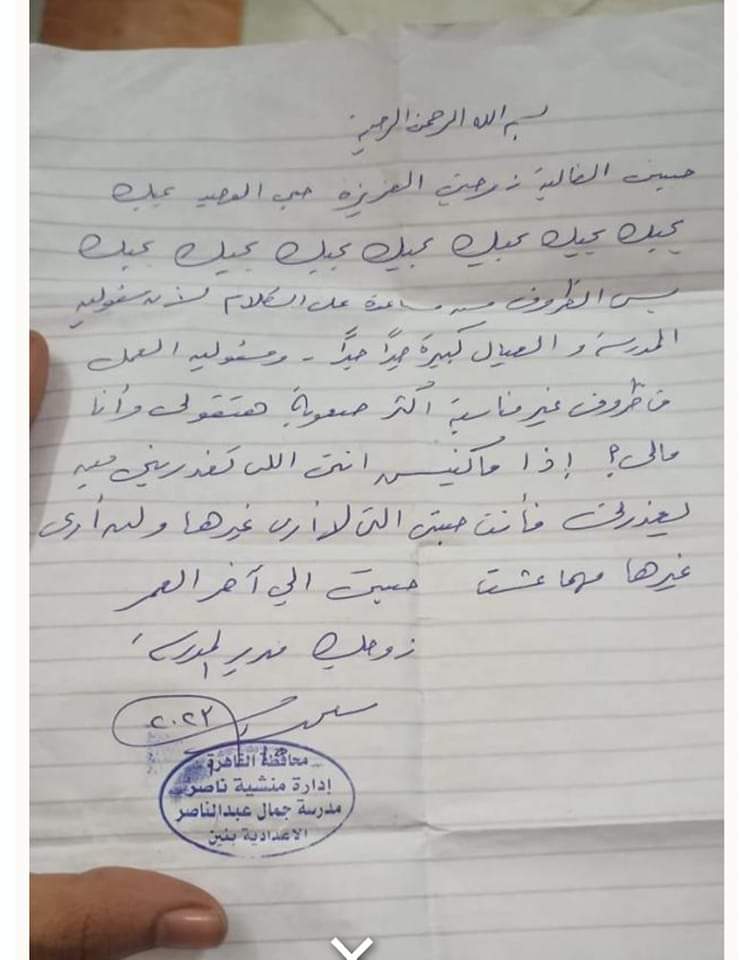 بسم الله الرحمن الرحيم
حبيبتى الغالية زوجتى العزيزة حبى الوحيد بحبك
بحبك بحبك بحبك بحبك بحبك بحبك بحبك
بس الظروف مش مساعدة على الكلام لأن مسئولية
المدرسة و العيال كبيرة جداً جداً - ومسئولية العمل
فى ظروف غير مناسبة أكثر صعوبة هتقولى وأنا
مالى؟ إذا ماكنتيش انتى اللى تعذرينى مين
يعذرنى فأنت حبيبتى التى لا أرى غيرها ولن أرى
غيرها مهما عشت حبيبتى الي آخر العمر
زوجك مدير المدرسة
٢٠٢٣
محافظة القاهرة
إدارة منشية ناصر
مدرسة جمال عبدالناصر
الاعدادية بنين